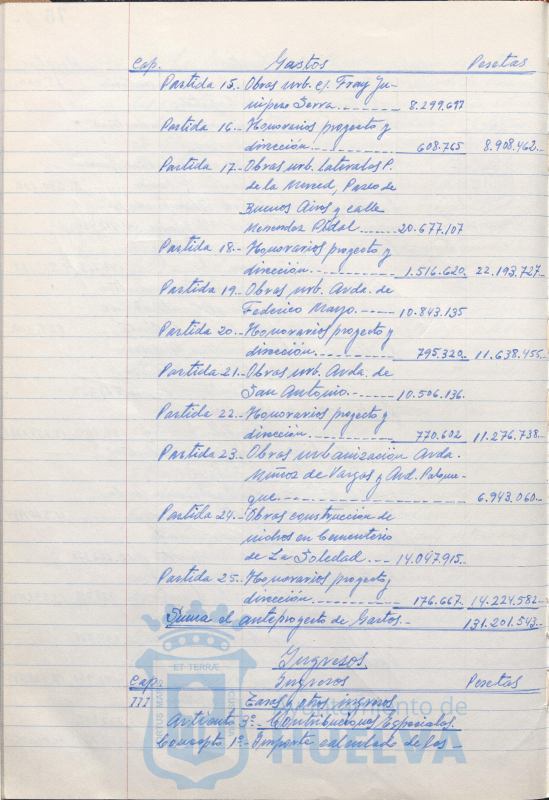 Cap. Gastos Pesetas
Partida 15.- Obras urb. c/. Fray Ju-
nipero Serra.-------- 8.299.697
Partida 16.- Honorarios proyecto y
dirección.---------- 608.765 8.908.462.-
Partida 17.- Obras urb. laterales P.
de la Merced, Paseo de
Buenos Aires y calle
Menendez Pidal ----- 20.677.107
Partida 18.- Honorarios proyecto y
dirección.---------- 1.516.620. 22.193.727.-
Partida 19.- Obras urb. Avda. de
Federico Mayo.----- 10.843.135
Partida 20.- Honorarios proyecto y
dirección.---------- 795.320.- 11.638.455.-
Partida 21.- Obras urb. Avda. de
San Antonio.------ 10.506.136.
Partida 22.- Honorarios proyecto y
dirección.---------- 770.602 11.276.738.-
Partida 23.- Obras urbanización Avda.
Muñoz de Vargas y Avd. Palque-
que.---------- 6.943.060.-
Partida 24.- Obras construccion de
nichos en Cementerio
de La Soledad. --- 14.047.915.-
Partida 25.- Honorarios proyecto y
dirección.---------- 176.667. 14.224.582.-
Suma el anteproyecto de Gastos.- 131.201.543.-
Ingresos
Cap. Ingresos Pesetas
III Tasas y otros ingresos
Artículo 3º.- Contribuciones Especiales.
Concepto 1º.- Importe calculado de las -
ET TERRÆ
Ayuntamiento de
HUELVA